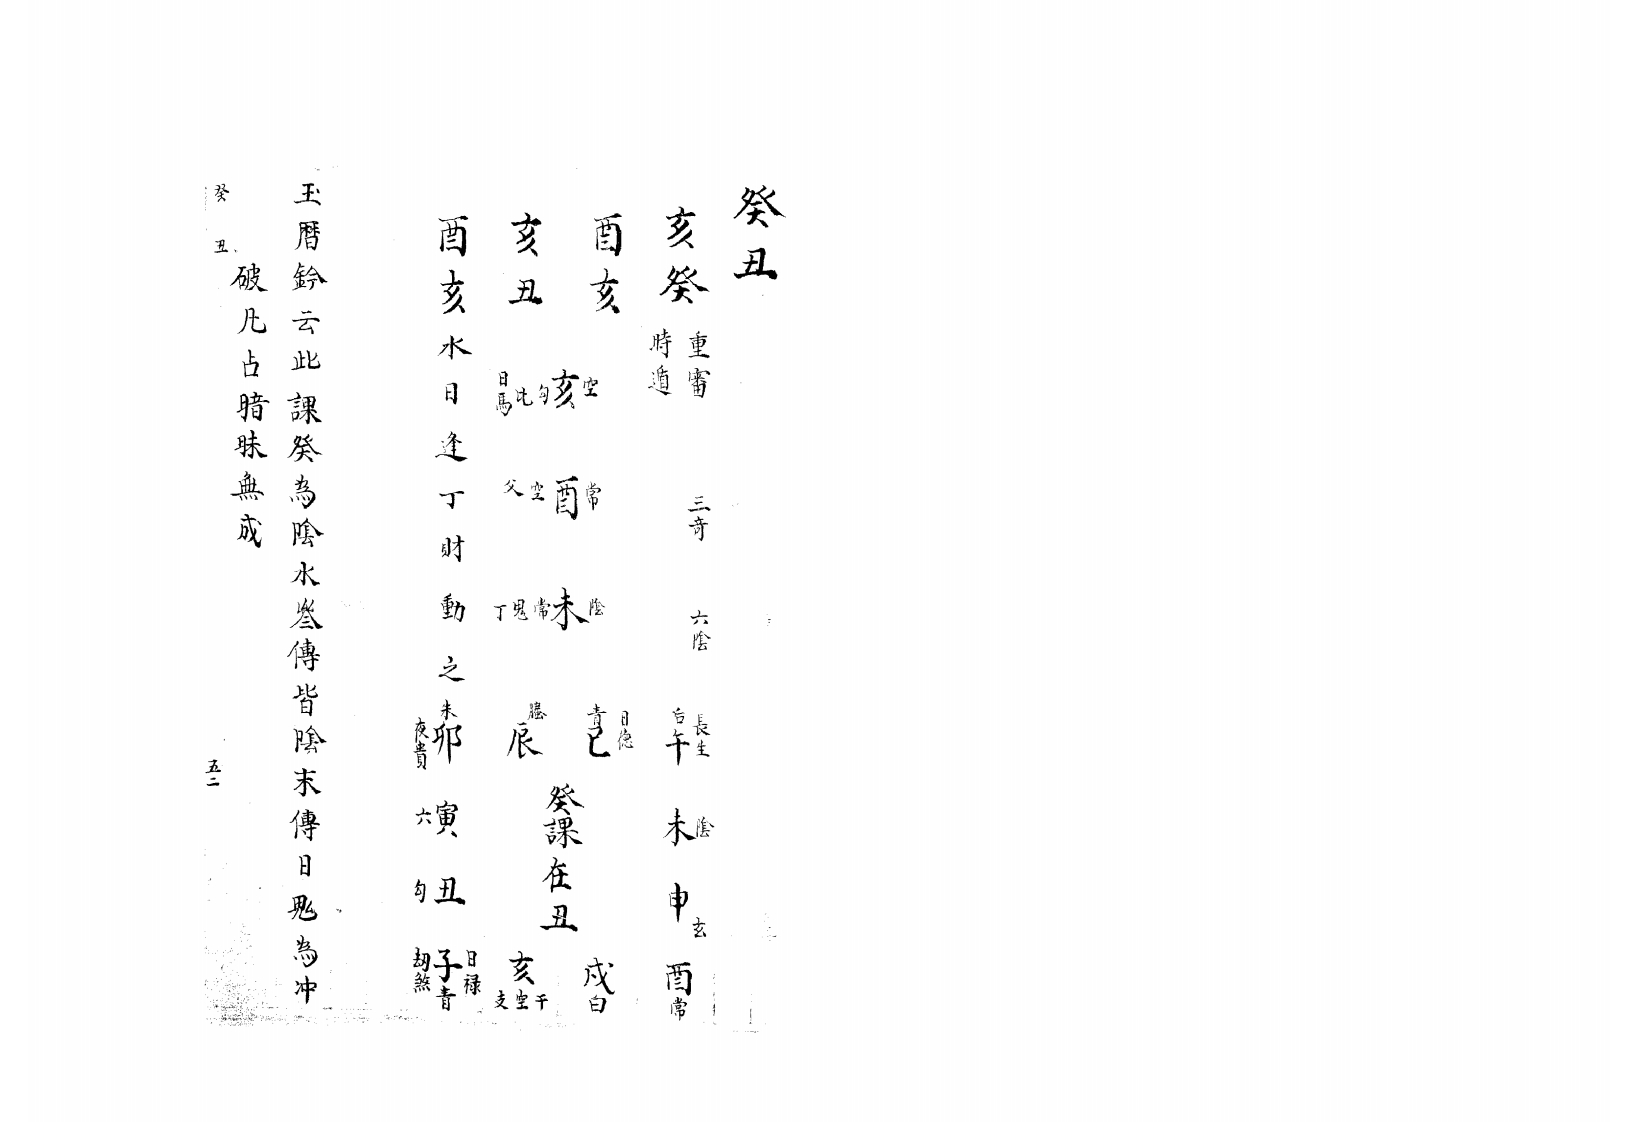 癸丑
亥癸 重審 三奇 六陰
時遁
酉亥
亥丑
酉亥 水日逢丁財動之
空亥勾比日馬
常酉空父
陰未常鬼丁
長生 午后
未陰
申玄
酉常
日德 巳青
戌白
辰
亥 干空支
卯朱 夜貴
寅六
丑勾
日禄 子青 劫煞
癸課在丑
玉曆鈐云此課癸為陰水叁傳皆陰末傳日鬼為冲
破凡占暗昧無成
癸丑
五二